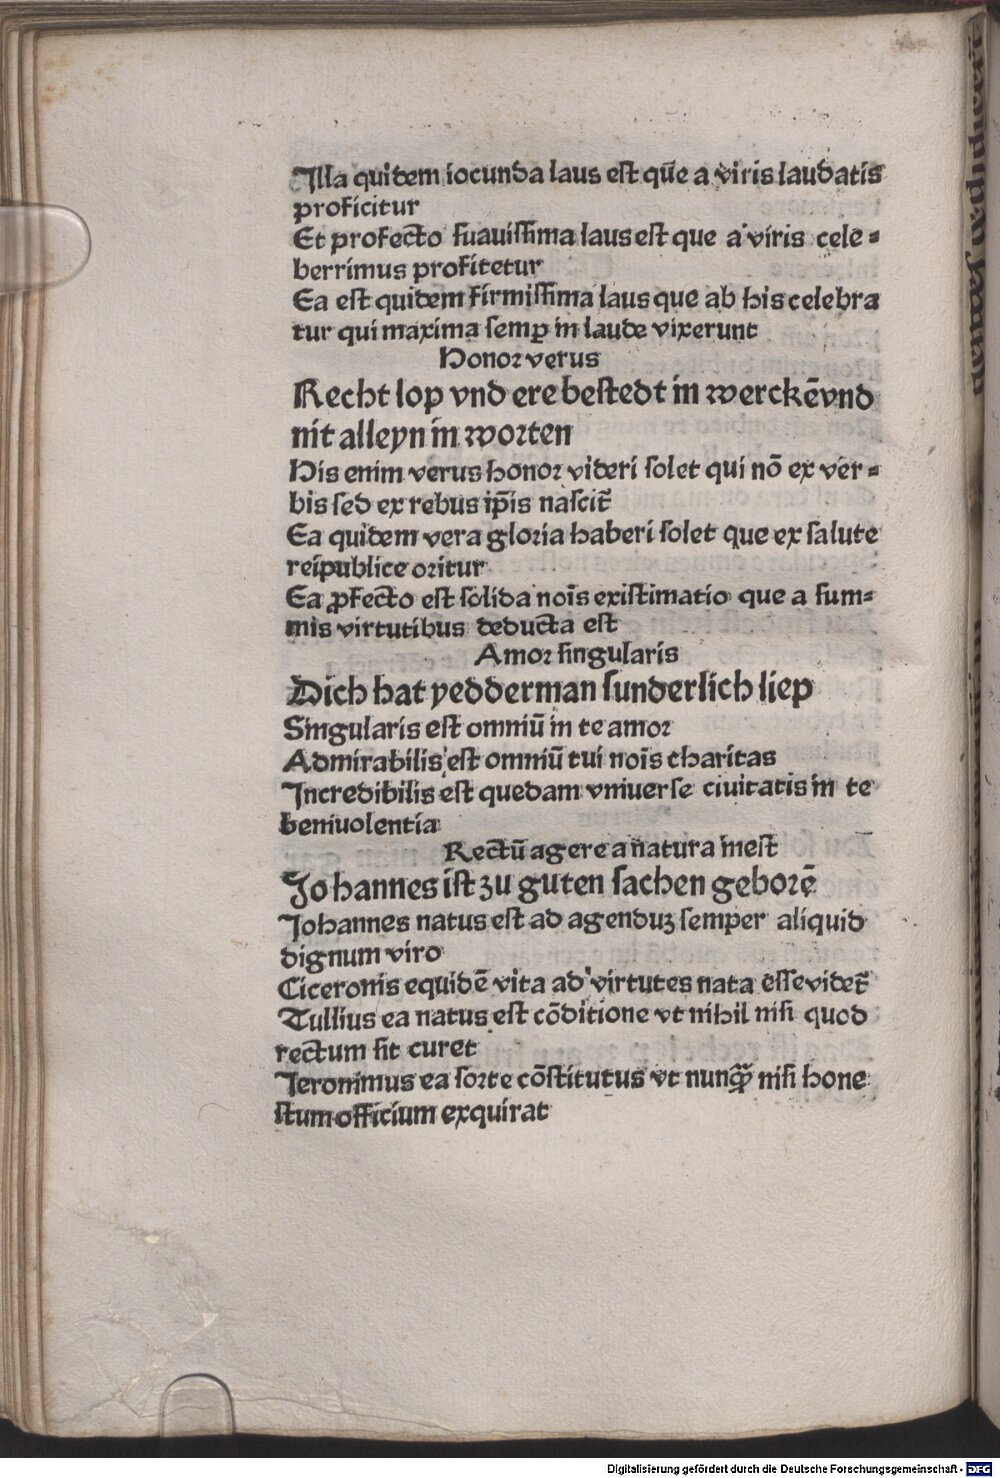 Illa quidem iocunda laus est qūe a viris laudatis
proficitur
Et profecto suauissima laus est que a viris cele=
berrimus profitetur
Ea est quidem firmissima laus que ab his celebra
tur qui maxima semꝑ in laude vixerunt
Honor verus
Recht lop vnd ere bestedt in werckē vnd
nit alleyn in worten
His enim verus honor videri solet qui nō ex ver=
bis sed ex rebus ip̄is nascit᷑
Ea quidem vera gloria haberi solet que ex salute
reipublice oritur
Ea ꝓfecto est solida noīs existimatio que a sum=
mis virtutibus deducta est
Amor singularis
Dich hat yedderman sunderlich liep
Singularis est omniū in te amor
Admirabilis est omniū tui noīs charitas
Incredibilis est quedam vniuerse ciuitatis in te
beniuolentia
Rectū agere a natura inest
Johannes ist zu guten sachen geborē
Johannes natus est ad agenduꝫ semper aliquid
dignum viro
Ciceronis equidē vita ad virtutes nata esse videt᷑
Tullius ea natus est cōditione vt nihil nisi quod
rectum sit curet
Jeronimus ea sorte cōstitutus vt nunꝙ̄ nisi hone
stum officium exquirat
Digitalisierung gefördert durch die Deutsche Forschungsgemeinschaft - DFG